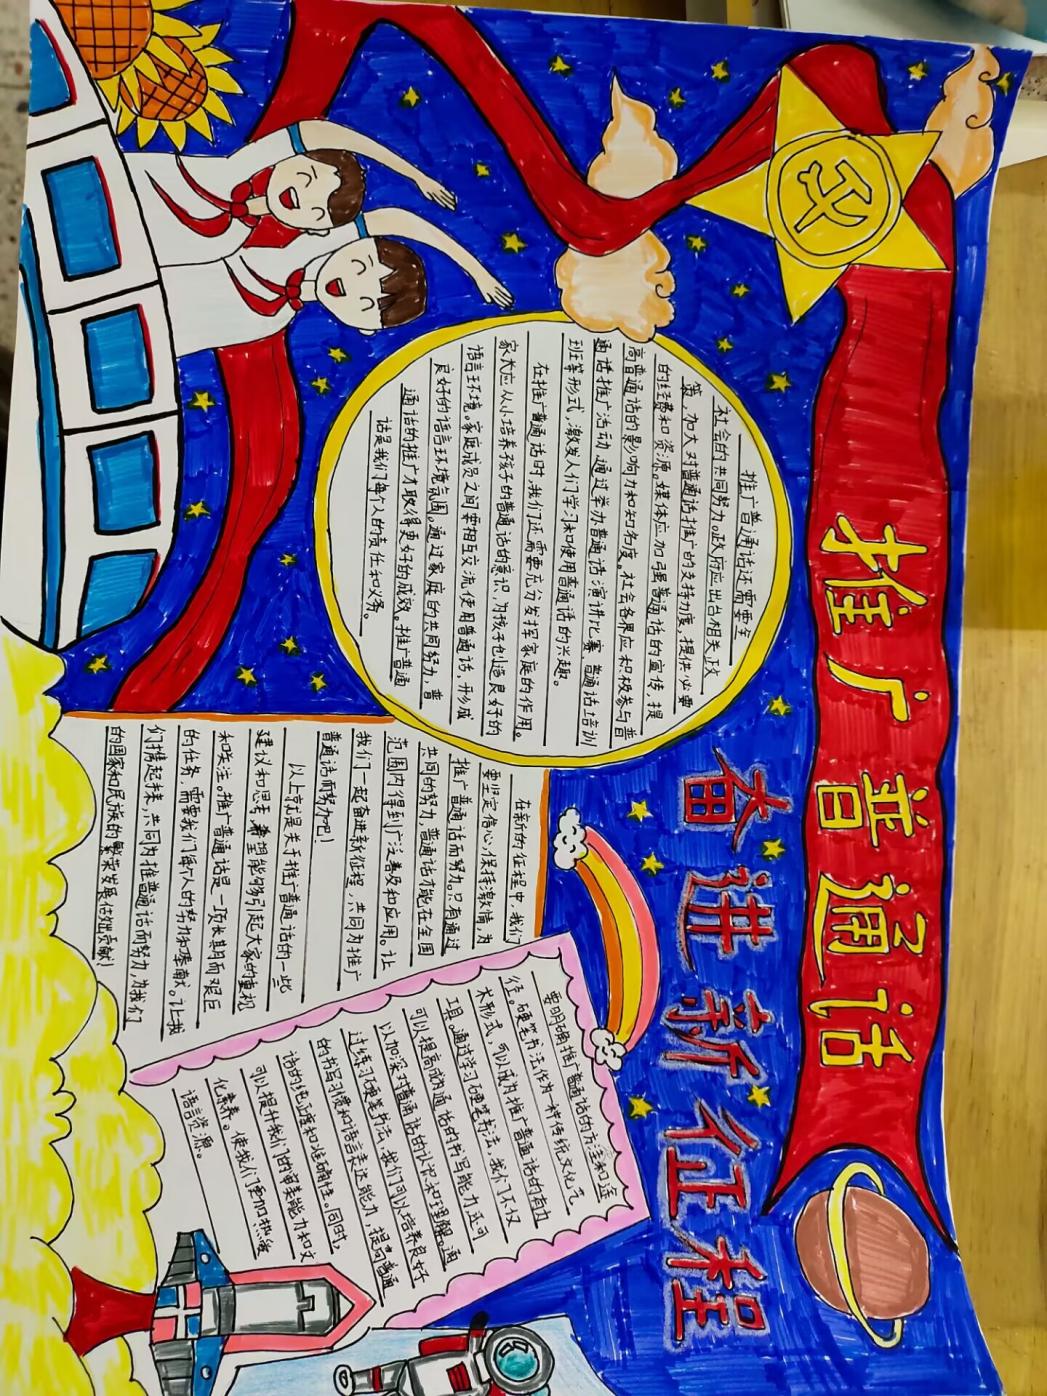 推广普通话
奋进新征程
推广普通话还需要全
社会的共同努力。政府应出台相关政
策，加大对普通话推广的支持力度，提供必要
的经费和资源。媒体应加强普通话的宣传，提
高普通话的影响力和知名度。社会各界应积极参与普
通话推广活动，通过举办普通话演讲比赛、普通话培训
班等形式，激发人们学习和使用普通话的兴趣。
在推广普通话时，我们还需要充分发挥家庭的作用。
家长应从小培养孩子的普通话的意识，为孩子创造良好的
语言环境。家庭成员之间要相互交流使用普通话，形成
良好的语言环境氛围。通过家庭的共同努力，普
通话的推广才取得更好的成效。推广普通
话是我们每个人的责任和义务。
在新的征程中，我们
要坚定信心，保持激情，为
推广普通话而努力。只有通过
共同的努力，普通话才能在全国
范围内得到广泛普及和应用。让
我们一起奋进新征程，共同为推广
普通话而努力吧！
以上就是关于推广普通话的一些
建议和思考，希望能够引起大家的重视
和关注。推广普通话是一项长期而艰巨
的任务，需要我们每个人的努力和奉献。让我
们携起手来，共同为推普通话而努力，为我们
的国家和民族的繁荣发展做出贡献！
要明确推广普通话的方法和途
径。硬笔书法作为一种传统文化艺
术形式，可以成为推广普通话的有力
工具。通过学习硬笔书法，我们不仅
可以提高普通话的书写能力，还可
以加深对普通话的认识和理解。通
过练习硬笔书法，我们可以培养良好
的书写习惯和语言表达能力，提高普通
话的纯正性和准确性。同时，
可以提升我们的审美能力和文
化素养。使我们更加热爱
语言资源。